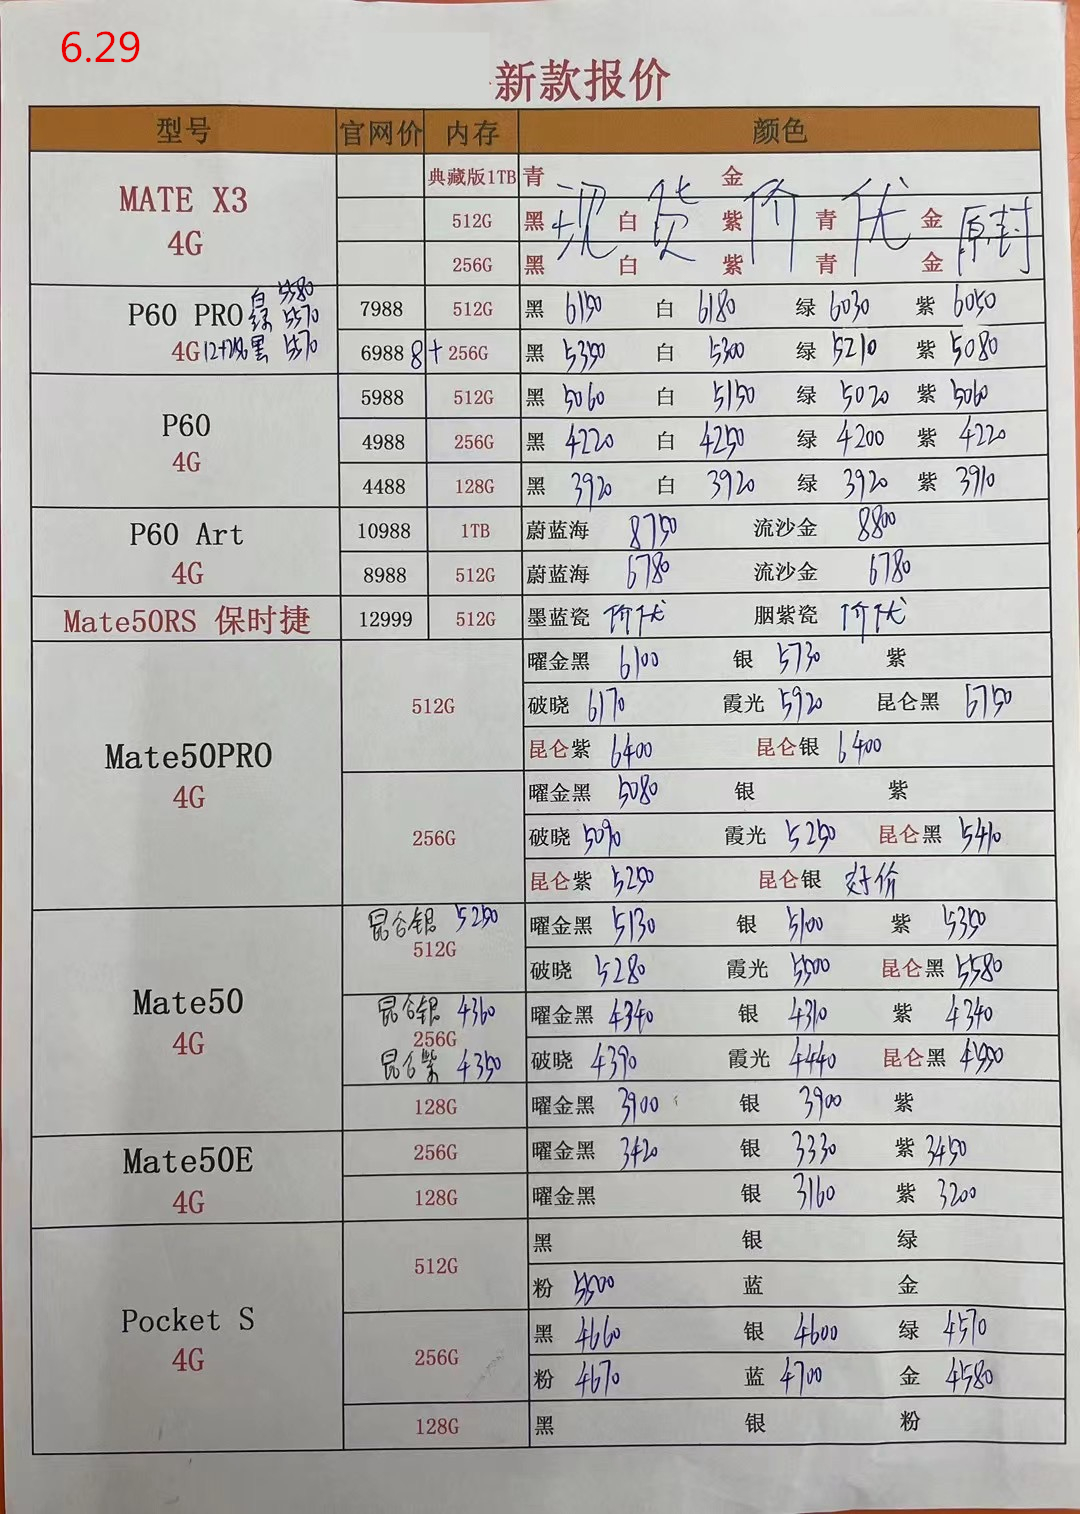 6.29
新款报价
型号 官网价 内存 颜色
MATE X3 4G
典藏版1TB 青 金
512G 黑 白 紫 青 金
256G 黑 白 紫 青 金
现货价优 原封
P60 PRO 4G
白 5580
绿 5570
12+256 黑 5570
7988 512G 黑 6150 白 6180 绿 6030 紫 6050
6988 8+256G 黑 5350 白 5300 绿 5210 紫 5080
P60 4G
5988 512G 黑 5060 白 5150 绿 5020 紫 5060
4988 256G 黑 4220 白 4250 绿 4200 紫 4220
4488 128G 黑 3920 白 3920 绿 3920 紫 3910
P60 Art 4G
10988 1TB 蔚蓝海 8750 流沙金 8800
8988 512G 蔚蓝海 6780 流沙金 6780
Mate50RS 保时捷 12999 512G 墨蓝瓷 价优 胭紫瓷 价优
Mate50PRO 4G
512G 曜金黑 6100 银 5730 紫
破晓 6170 霞光 5920 昆仑黑 6750
昆仑紫 6400 昆仑银 6400
256G 曜金黑 5080 银 紫
破晓 5090 霞光 5250 昆仑黑 5410
昆仑紫 5250 昆仑银 好价
Mate50 4G
昆仑银 5250
512G 曜金黑 5130 银 5100 紫 5350
破晓 5280 霞光 5500 昆仑黑 5580
昆仑银 4360
256G 曜金黑 4340 银 4310 紫 4340
昆仑紫 4350
破晓 4390 霞光 4440 昆仑黑 4500
128G 曜金黑 3900 银 3900 紫
Mate50E 4G
256G 曜金黑 3420 银 3330 紫 3450
128G 曜金黑 银 3160 紫 3200
Pocket S 4G
512G 黑 银 绿
粉 5500 蓝 金
256G 黑 4660 银 4600 绿 4570
粉 4670 蓝 4700 金 4580
128G 黑 银 粉